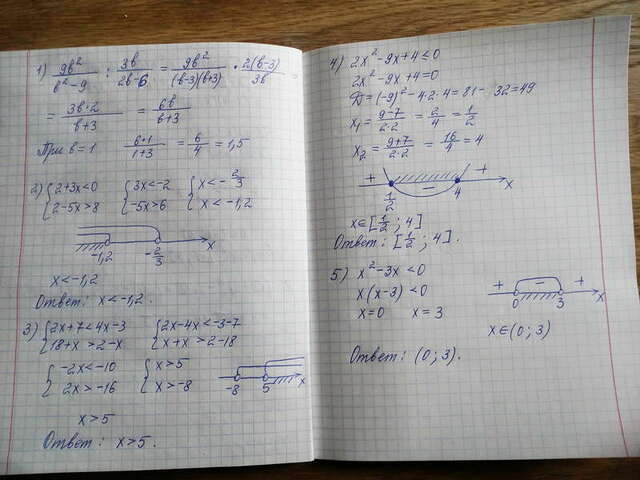 1) 9b²/(b²-9) : 3b/(2b-6) = 9b²/((b-3)(b+3)) · 2(b-3)/3b =
= 3b·2/(b+3) = 6b/(b+3)
При b=1 6·1/(1+3) = 6/4 = 1,5
2) {2+3x<0 {3x<-2 {x<-2/3
{2-5x>8 {-5x>6 {x<-1,2
-1,2 -2/3 x
x<-1,2
Ответ: x<-1,2.
3) {2x+7<4x-3 {2x-4x<-3-7
{18+x>2-x {x+x>2-18
{-2x<-10 {x>5
{2x>-16 {x>-8
-8 5 x
x>5
Ответ: x>5.
4) 2x²-9x+4≤0
2x²-9x+4=0
D=(-9)²-4·2·4=81-32=49
x₁=(9-7)/(2·2)=2/4=1/2
x₂=(9+7)/(2·2)=16/4=4
+ - +
1/2 4 x
x∈[1/2;4]
Ответ: [1/2;4].
5.) x²-3x<0
x(x-3)<0
x=0 x=3
+ - +
0 3 x
x∈(0;3)
Ответ: (0;3).